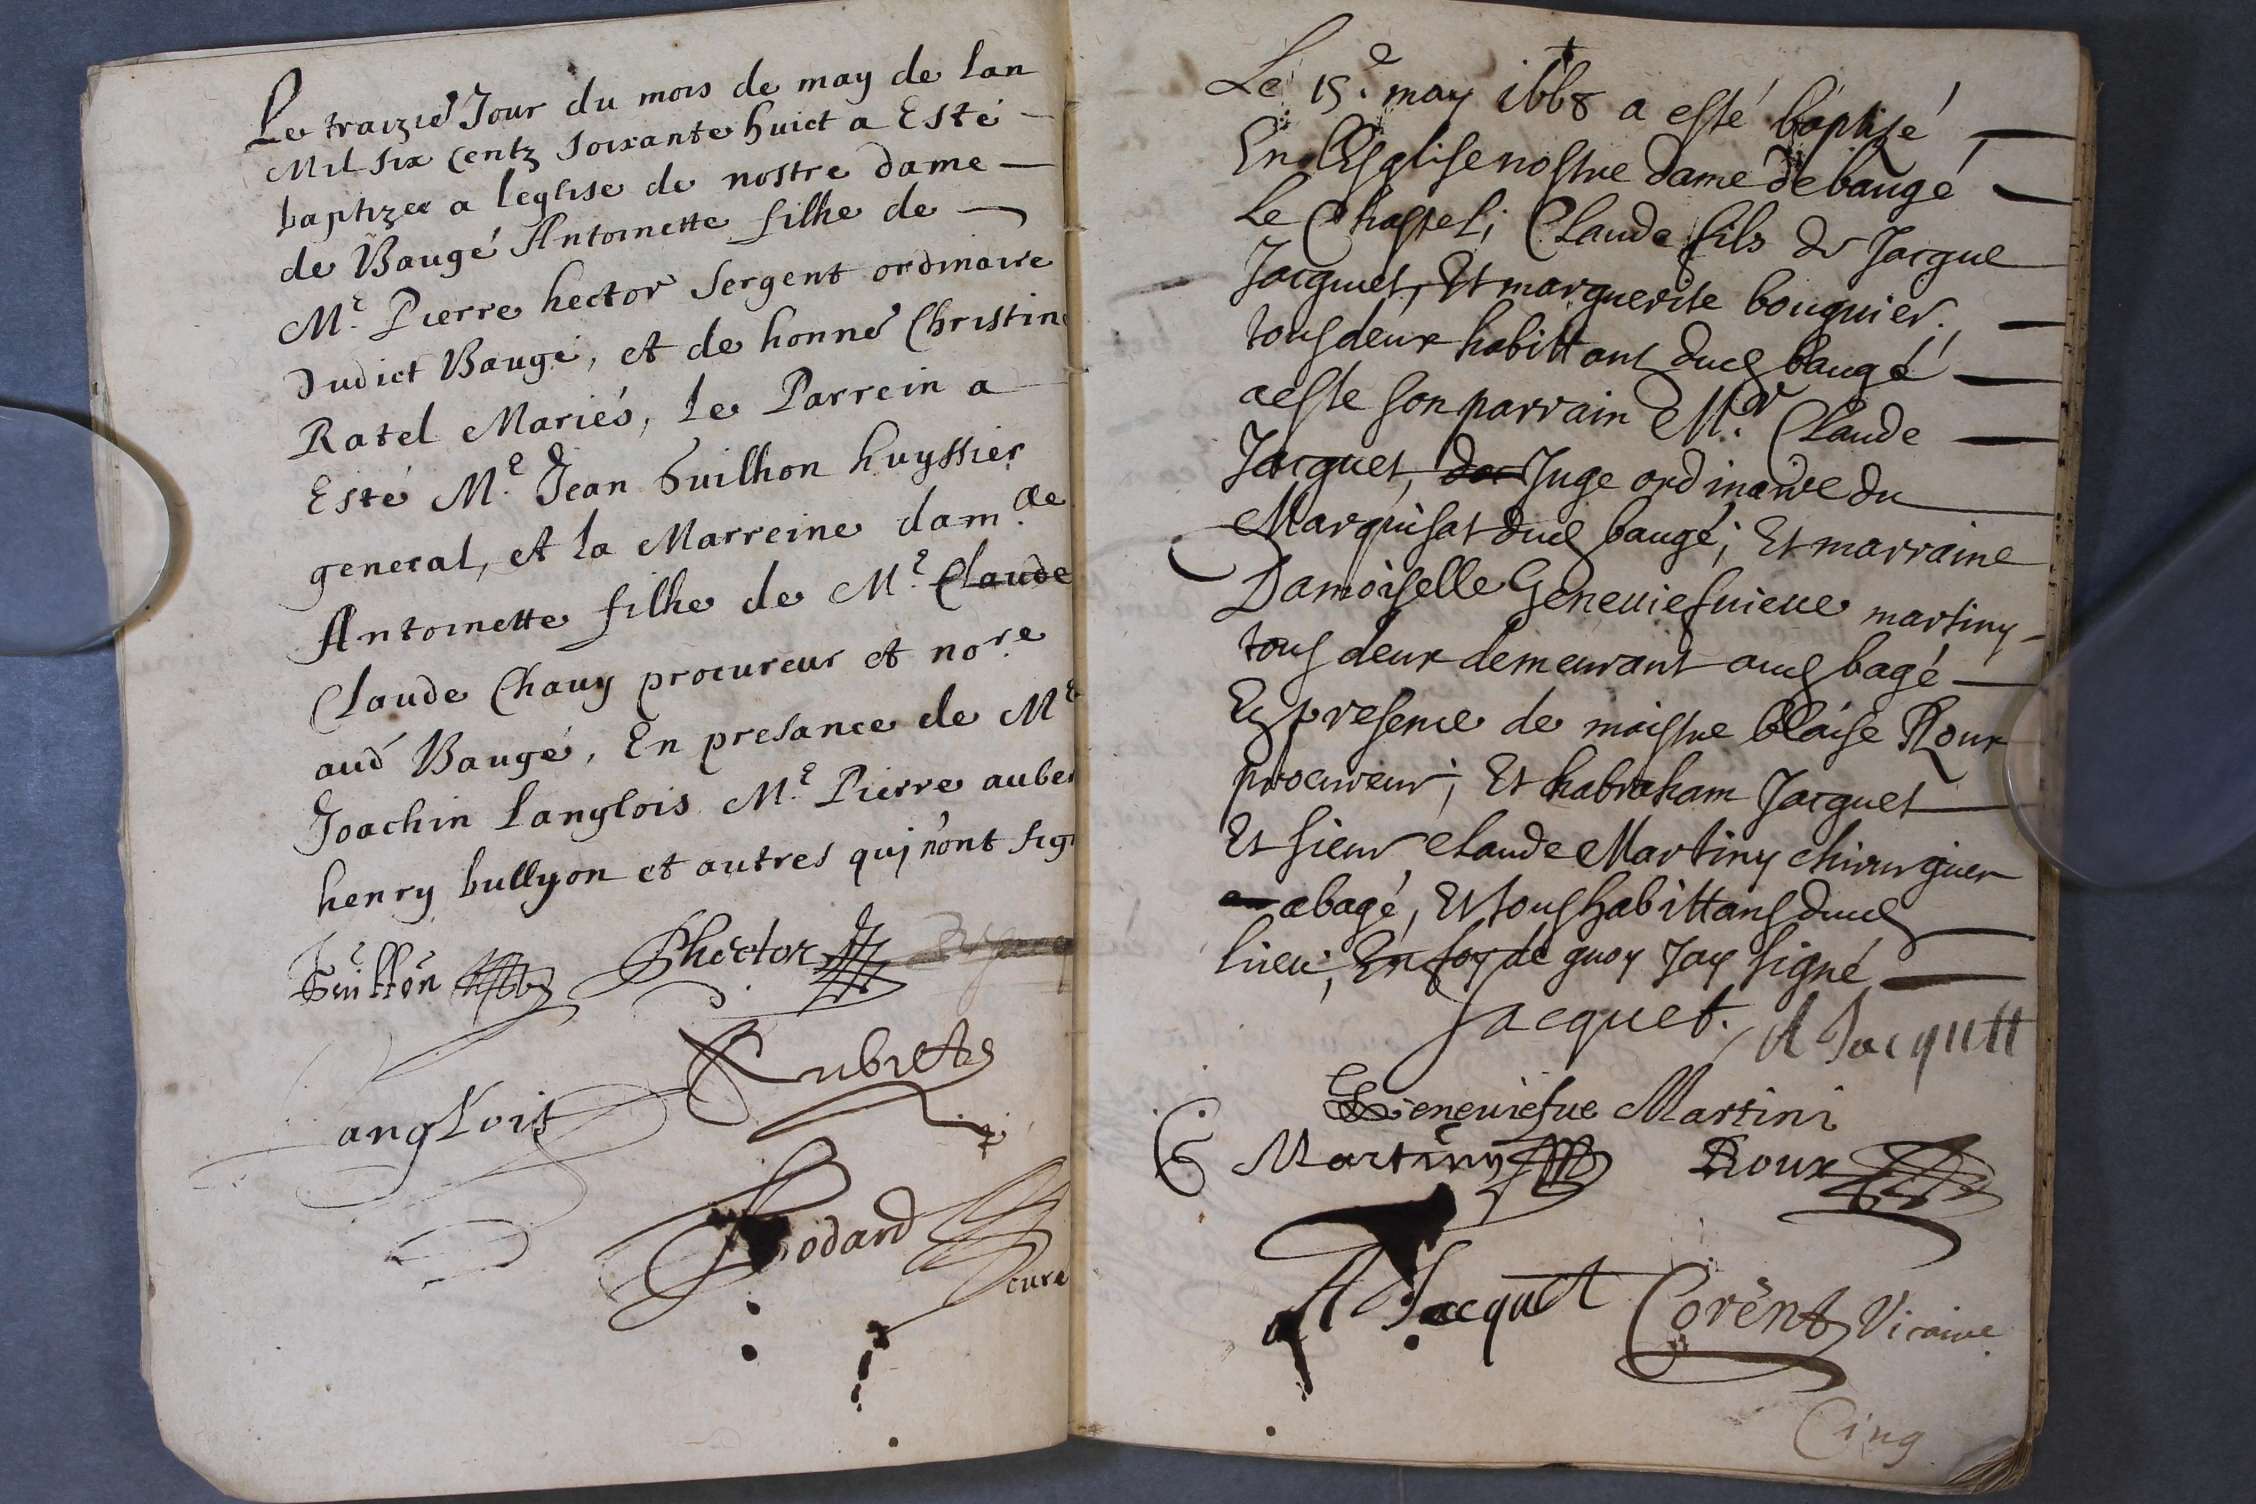 Le traizie Jour du mois de may de lan
Mil six centz soixante huict a Esté
baptizee a leglise de nostre dame
de Baugé Antoinette filhe de
Me. Pierre hector Sergent ordinaire
dudict Baugé, et de honne Christine
Ratel Mariés, Le Parrein a
Esté Me. Jean Guilhon huyssier
general, et la Marreine damlle
Antoinette filhe de Me. Claude
Claude Chauy procureur et nore
aud Baugé, En presance de Me
Joachin Langlois Me. Pierre auber
henry bullyon et autres quj nont sig
Guillon Phector
Aubret
anglois
Godard
cure
Le 15.e may 1668 a esté baptisé
En lEsglise nostre dame de baugé
Le Chastel; Claude fils de Jacque
Jacquet, Et marguerite bouquier.
tous deux habittant dud baugé
a este son parrain Mr. Claude
Jacquet, Juge ordinaire du
Marquisat dud baugé; Et marraine
Damoiselle Geneuiefuieue martiny
tous deux demeurant aud bagé
En presence de maistre blaise Roux
procureur; Et habraham Jacquet
Et sieur Claude Martiny chirurgien
a bagé, Et tous habittans dud
lieu; En foy de quoy Jay signé
Jacquet. A Jacquett
Geneuiefue Martini
C Martiny Roux
A Jacquet Corent Vicaire
Cinq